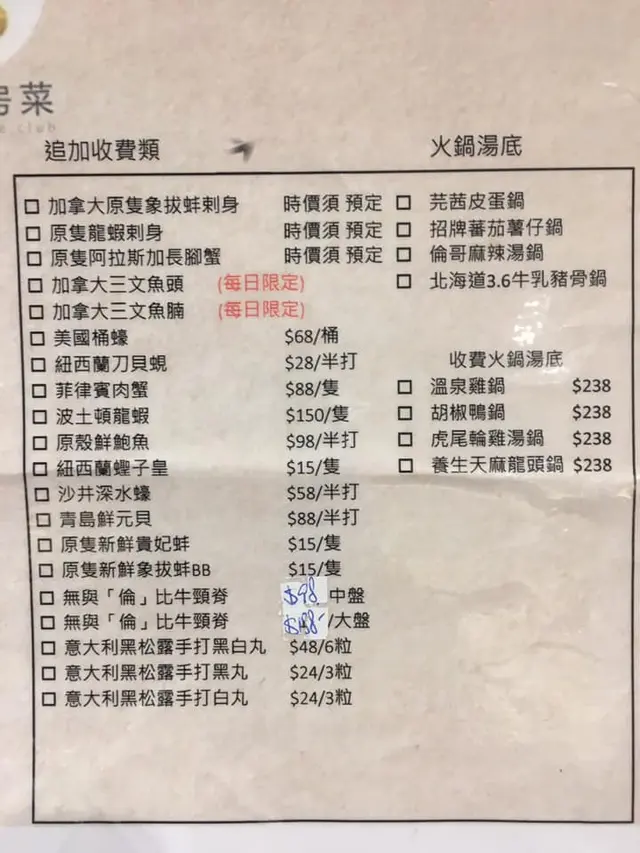 房菜
club
追加收費類
火鍋湯底
加拿大原隻象拔蚌刺身 時價須 預定
原隻龍蝦刺身 時價須 預定
原隻阿拉斯加長腳蟹 時價須 預定
加拿大三文魚頭 (每日限定)
加拿大三文魚腩 (每日限定)
美國桶蠔 $68/桶
紐西蘭刀貝蜆 $28/半打
菲律賓肉蟹 $88/隻
波士頓龍蝦 $150/隻
原殼鮮鮑魚 $98/半打
紐西蘭蟶子皇 $15/隻
沙井深水蠔 $58/半打
青島鮮元貝 $88/半打
原隻新鮮貴妃蚌 $15/隻
原隻新鮮象拔蚌BB $15/隻
無與「倫」比牛頸脊 $98 中盤
無與「倫」比牛頸脊 /大盤
意大利黑松露手打黑白丸 $48/6粒
意大利黑松露手打黑丸 $24/3粒
意大利黑松露手打白丸 $24/3粒
芫茜皮蛋鍋
招牌蕃茄薯仔鍋
倫哥麻辣湯鍋
北海道3.6牛乳豬骨鍋
收費火鍋湯底
溫泉雞鍋 $238
胡椒鴨鍋 $238
虎尾輪雞湯鍋 $238
養生天麻龍頭鍋 $238